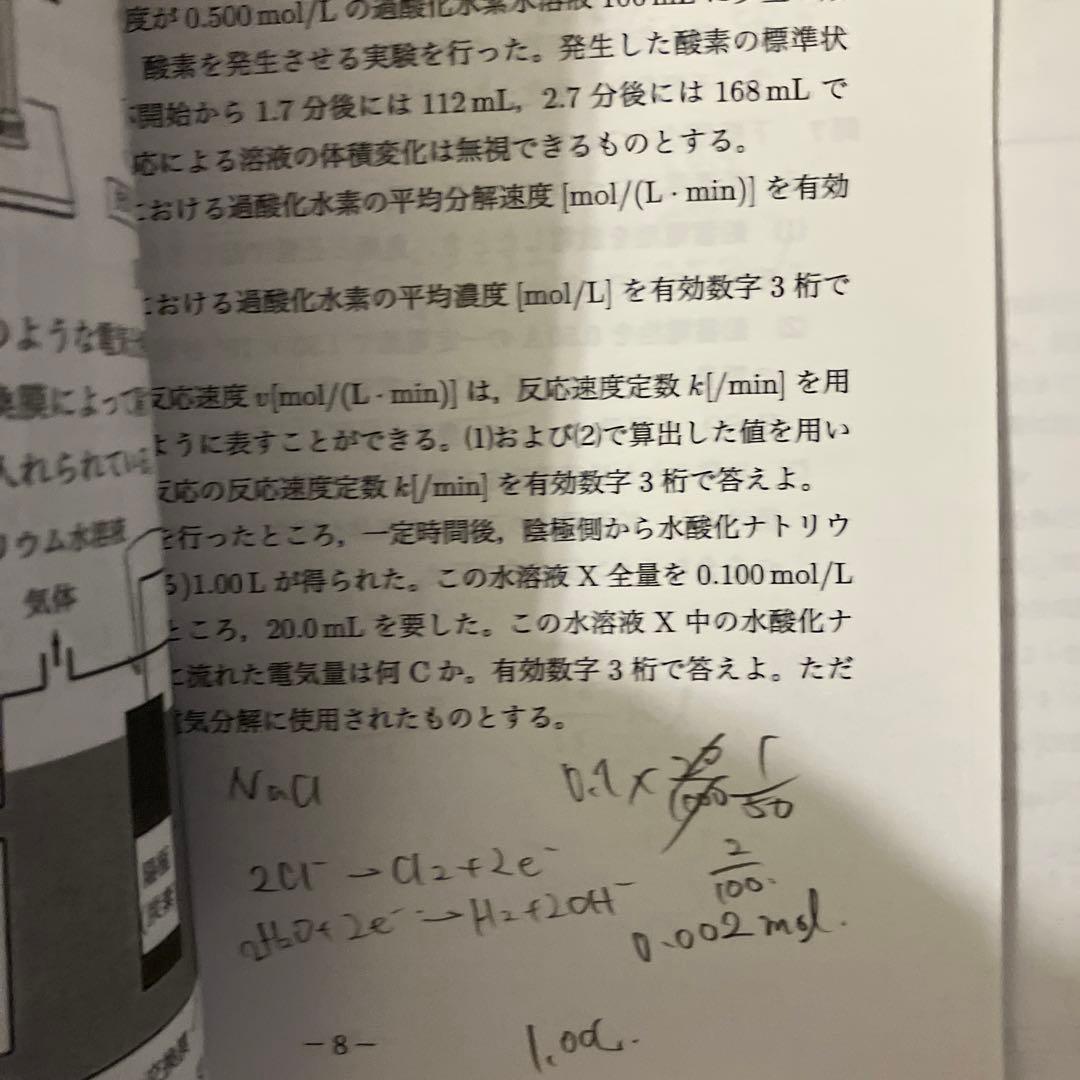 度が 0.500 mol/L の過酸化水素水溶液 100 mL に
酸素を発生させる実験を行った。発生した酸素の標準状
開始から 1.7 分後には 112 mL, 2.7 分後には 168 mL で
応による溶液の体積変化は無視できるものとする。
における過酸化水素の平均分解速度 [mol/(L・min)] を有効
における過酸化水素の平均濃度 [mol/L] を有効数字 3 桁で
反応速度 v[mol/(L・min)] は, 反応速度定数 k[/min] を用
ように表すことができる。(1)および(2)で算出した値を用い
反応の反応速度定数 k[/min] を有効数字 3 桁で答えよ。
を行ったところ, 一定時間後, 陰極側から水酸化ナトリウ
)1.00 L が得られた。この水溶液 X 全量を 0.100 mol/L
ところ, 20.0 mL を要した。この水溶液 X 中の水酸化ナ
に流れた電気量は何 C か。有効数字 3 桁で答えよ。ただ
電気分解に使用されたものとする。
のような電気
換膜によって
入れられている
リウム水溶液
気体
NaCl
0.1 × 20/1000 1/50
2Cl⁻ → Cl2 + 2e⁻
2/100
2H2O + 2e⁻ → H2 + 2OH⁻
0.002 mol.
－8－
交換膜